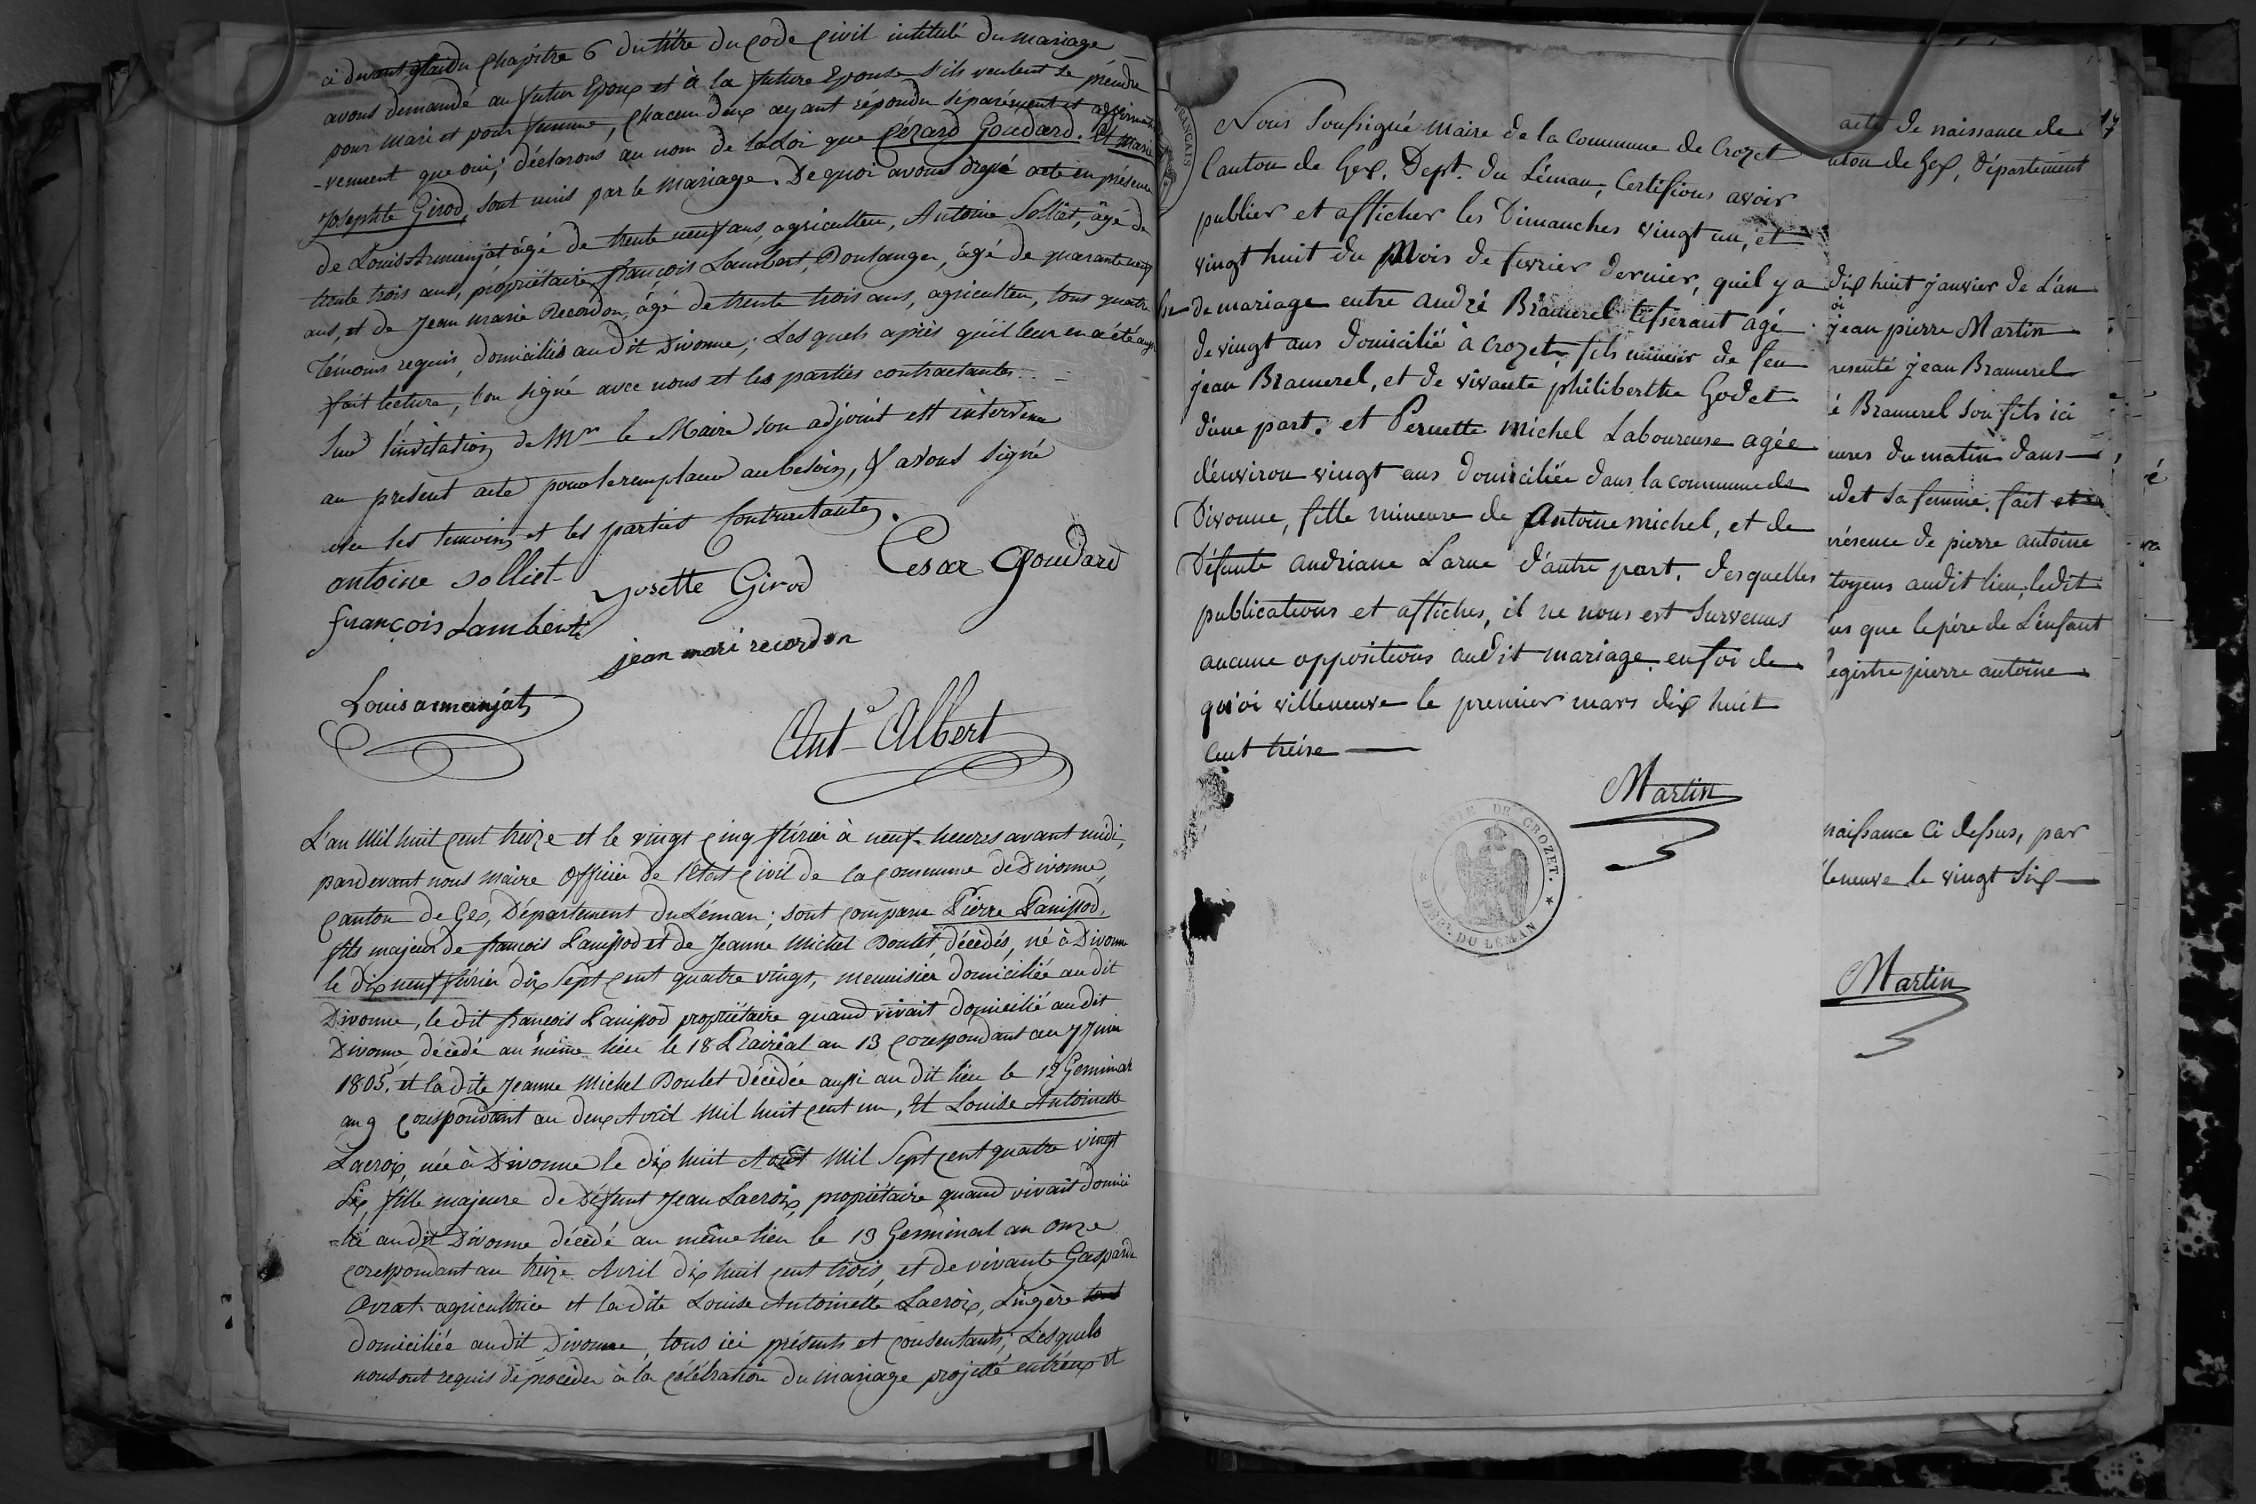 ci devant du Chapitre 6 du titre du Code Civil intitulé du Mariage
avons demandé au futur Epoux et à la future Epouse s'ils veulent se prendre
pour mari et pour femme, chacun d'eux ayant répondu séparément et affirmati
-vement que oui; déclarons au nom de la Loi que Cézard Goudard. Et Marie
Josephte Girod, sont unis par le Mariage. De quoi avons dressé acte en présence
de Louis Armenjat âgé de trente neuf ans, agriculteur, Antoine Solliet, âgé de
trente trois ans, propriétaire, françois Lambert, Boulanger, âgé de quarante neuf
ans, et de Jean Marie Recordon, âgé de trente trois ans, agriculteur, tous quatre
Témoins requis, domiciliés audit Divonne; Lesquels après qu'il leur en a été aussi
fait lecture, l'on signé avec nous et les parties contractantes.
Sur l'invitation de Mr le Maire son adjoint est intervenu
au present acte pour le remplacer au besoin, & avons signé
avec les temoins et les parties Contractantes.
antoine solliet
Josette Girod
Cesar Goudard
françois Lambert
jean mari recordon
Louis armenjat
Ant. Albert
L'an Mil huit Cent treize et le vingt Cinq février à neuf heures avant midi,
pardevant nous Maire Officier de l'Etat Civil de la Commune de Divonne,
Canton de Gex, Département du Léman; sont comparu Pierre Panissod,
fils majeur de françois Panissod et de Jeanne Michel Poulet décédés, né à Divonne
le dix neuf février dix Sept Cent quatre vingt, menuisier domiciliée au dit
Divonne, le dit françois Panissod propriétaire quand vivait domicilié au dit
Divonne décédé au même lieu le 18 Prairial an 13 Corespondant au 7 Juin
1805, et la dite Jeanne Michel Poulet décédée aussi au dit lieu le 12 Germinal
an 9 Corespondant au deux Avril Mil huit Cent un, Et Louise Antoinette
Lacroix, née à Divonne le dix huit Août Mil Sept Cent quatre vingt
Six, fille majeure de Défunt Jean Lacroix, propriétaire quand vivait domici
-lié audit Divonne décédé au même lieu le 13 Germinal an Onze
Corespondant au treize Avril dix huit Cent trois, et de vivante Gasparde
agricultrice et la dite Louise Antoinette Lacroix, Lingère
domiciliée audit Divonne, tous ici présents et Consentants; Lesquels
nous ont requis de procéder à la célébration du Mariage projetté entr'eux et
FRANÇAIS
Nous Soussigné Maire de la Commune de Crozet
Canton de Gex, Dept. du Léman, Certifions avoir
publier et afficher les Dimanches vingt un, et
vingt huit du Mois de fevrier dernier, quil y a
de mariage entre andré Bramerel tisserant agé
de vingt ans domicilié à Crozet, fils mineur de feu
jean Bramerel, et de vivante philiberthe Godet
d'une part. et Pernette michel Laboureuse agée
d'environ vingt ans domiciliée dans la commune de
Divonne, fille mineure de Antoine michel, et de
Défunte andriane Larue d'autre part. desquelles
publications et affiches, il ne nous est survenus
aucune oppositions audit mariage. en foi de
quoi villeneuve le premier mars dix huit
cent treise
Martin
MAIRIE DE CROZET.
DÉPT. DU LÉMAN
acte de naissance de 17
nton de Gex, Département
dix huit janvier de L'an
jean pierre Martin
resenté jean Bramerel
é Bramerel son fils ici
eures du matin dans
det sa femme. fait et
résence de pierre antoine
toyens audit lieu, ledit
us que le père de L'enfant
egistre pierre antoine
naissance Ci dessus, par
lleneuve le vingt six
Martin